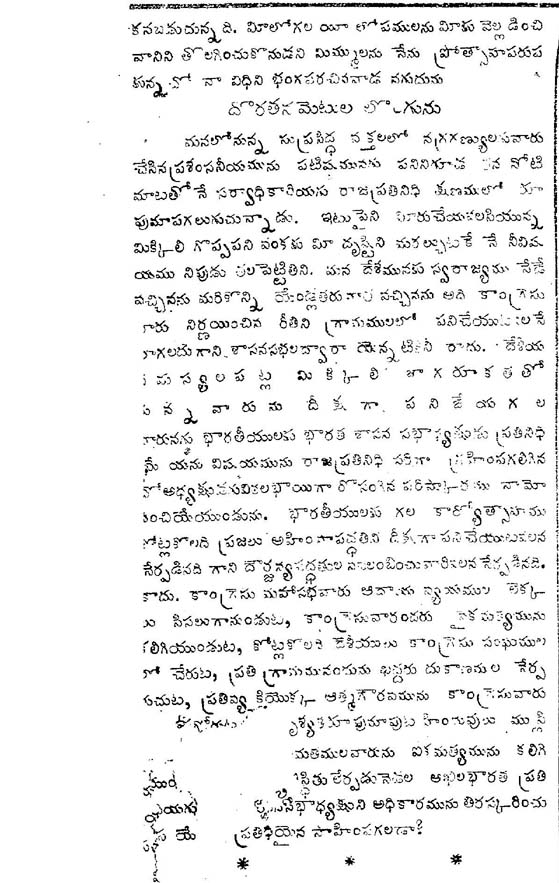 కనబడుచున్న ది. మీలోగల యీ లోపములను మీకు వెల్ల డించి
వానిని తొలగించుకొనుడని మిమ్ములను నేను ప్రోత్సాహపరుప
కున్న చో నా విధిని భంగపరచినవాడ నగుదును
దొరతనమెటుల లొంగును
మనలోనున్న సుప్రసిద్ధ వక్తలలో నగ్రగణ్యులగువారు
చేసిన ప్రశంసనీయమును పనినిగూడ తన నోటి
మాటతో నే సర్వాధికారియగు రాజప్రతినిధి క్షణములో రూ
పుమాపగలుగుచున్నాడు. ఇటుపైని మీరుచేయవలసియున్న
మిక్కిలి గొప్పపని వంకకు మీ దృష్టిని మరల్చుటకే నే నీవిష
యము నిపుడు తలపెట్టితిని. మన దేశమునకు స్వరాజ్యము నేడే
వచ్చినను మరికొన్ని యేండ్లకు వచ్చినను అది కాంగ్రెసు
వారు నిర్ణయించిన రీతిని గ్రామములలో పనిచేయుట
రాగలదు గాని, శాసనసభలద్వారా యెన్న టికినీ రాదు. దేశీయ
సమస్యలపట్ల మిక్కిలి జాగరూకతతో
నున్న వారును దీక్షగా పనిజేయగల
వారునగు భారతీయులకు భారత శాసన సభాధ్యక్షుడు ప్రతినిధి
యే యను విషయమును రాజప్రతినిధి సరిగా గ్రహింపగలిగిన
చో అధ్యక్షుడు
దించియేయుండును. భారతీయులకు గల కార్యోత్సాహము
కోట్లకొలది ప్రజలు అహింసాపద్ధతిని దీక్షగా పనిచేయుటవలన
నేర్పడినది గాని దౌర్జన్యపద్ధతుల నవలంబించువారివలన నేర్పడినది
కాదు. కాంగ్రెసు మహాసభవారు ఆచారు న్యాయముల లెక్క
లు సిసలుగానుండుట, కాంగ్రెసువారందరు నైకమత్యమును
కలిగియుండుట, కోట్లకొలది దేశీయులు కాంగ్రెసు సంఘముల
లో చేరుట, ప్రతి గ్రామమునందును ఖద్దరు దుకాణముల నేర్ప
రుచుట, ప్రతివ్య క్తియొక్క ఆత్మగౌరవమును కాంగ్రెసువారు
శ్యతరూపుమాపుట హిందువులు ముస్లి
మతములవారును ఐకమత్యమును కలిగి
స్థితు లేర్పడునెడల అఖిలభారత ప్రతి
సభాధ్యక్షుని అధికారమును తిరస్కరించు
ప్రతినిధియైన సాహింపగలడా?
* * *